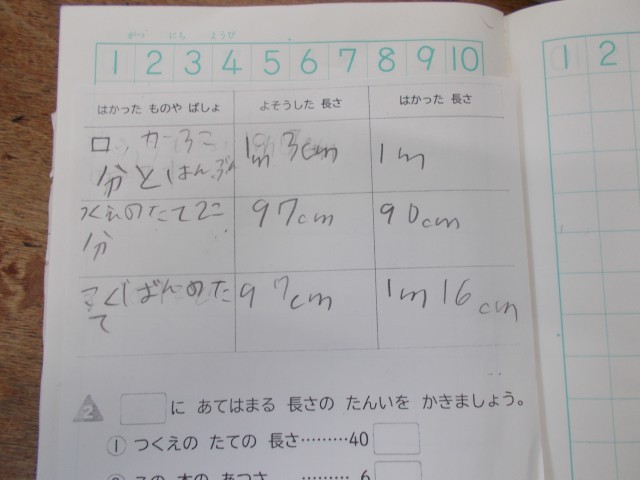 がつ にち ようび
1 2 3 4 5 6 7 8 9 10
1 2
はかった ものや ばしょ よそうした 長さ はかった 長さ
ロッカー3こ 1m 3cm 1m
分とはんぶん
つくえのたて2こ 97cm 90cm
分
こくばんのた 97cm 1m16cm
て
2 に あてはまる 長さの たんいを かきましょう。
① つくえの たての 長さ………40
この 本の あつさ ……… 6